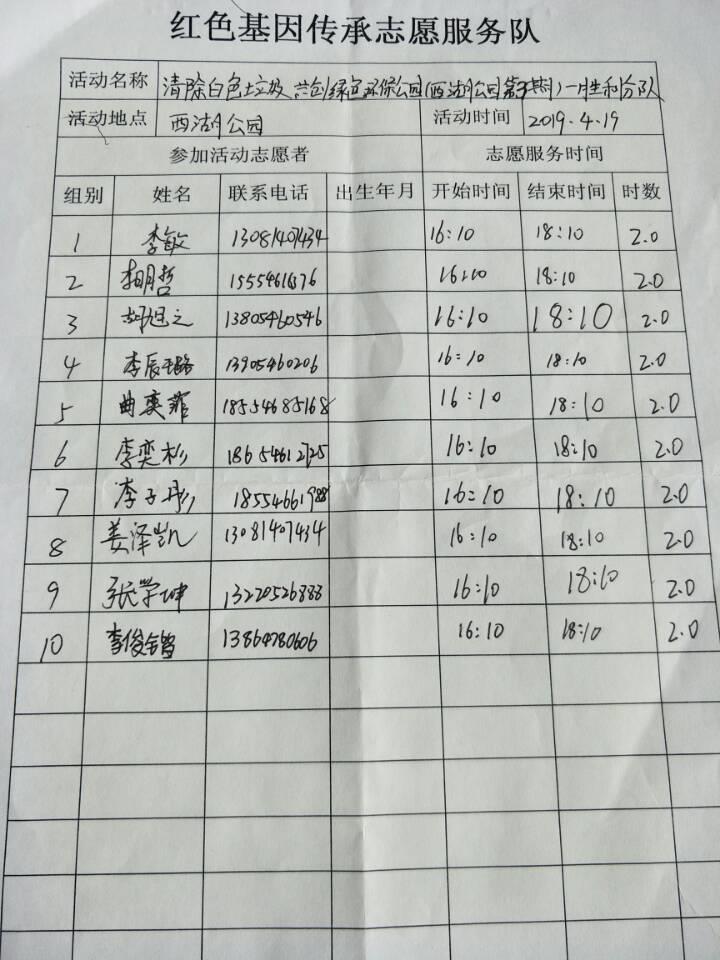 红色基因传承志愿服务队
活动名称 清除白色垃圾 共创绿色环保公园(西湖公园第期)一胜利分队
活动地点 西湖公园 活动时间 2019.4.19
参加活动志愿者 志愿服务时间
组别 姓名 联系电话 出生年月 开始时间 结束时间 时数
1 李敏 13081407434 16:10 18:10 2.0
2 明哲 16:10 18:10 2.0
3 胡旭之 13805460546 16:10 18:10 2.0
4 李辰璐 13905460206 16:10 18:10 2.0
5 曲奕菲 18554685168 16:10 18:10 2.0
6 李奕杉 18654612725 16:10 18:10 2.0
7 李子彤 18554661988 16:10 18:10 2.0
8 姜泽凯 13081407434 16:10 18:10 2.0
9 张学坤 13220526888 16:10 18:10 2.0
10 李俊 13864780606 16:10 18:10 2.0